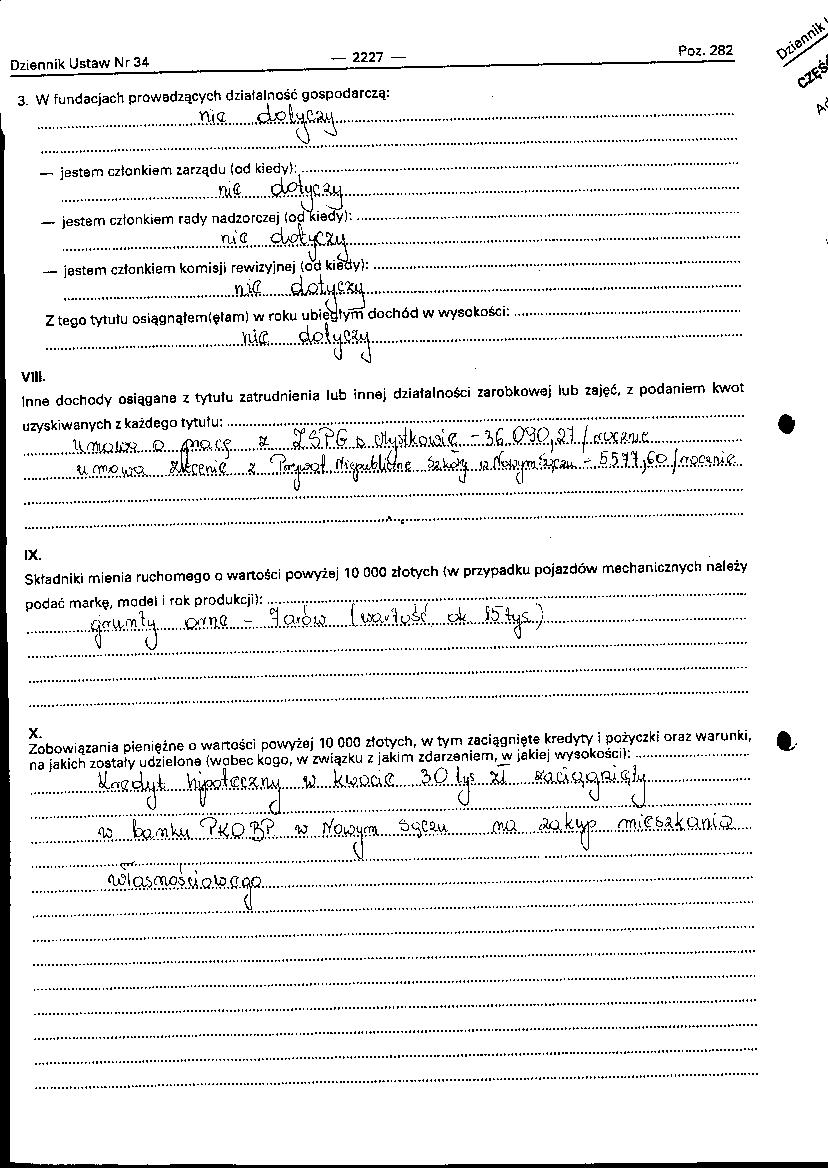 Dziennik Ustaw Nr 34 — 2227 — Poz. 282
3. W fundacjach prowadzących działalność gospodarczą:
nie dotyczy
— jestem członkiem zarządu (od kiedy):
nie dotyczy
— jestem członkiem rady nadzorczej (od kiedy):
nie dotyczy
— jestem członkiem komisji rewizyjnej (od kiedy):
nie dotyczy
Z tego tytułu osiągnąłem(ęłam) w roku ubiegłym dochód w wysokości:
nie dotyczy
VIII.
Inne dochody osiągane z tytułu zatrudnienia lub innej działalności zarobkowej lub zajęć, z podaniem kwot
uzyskiwanych z każdego tytułu:
umowa o pracę z ZSPG w Mystkowie - 36.090,27/rocznie
umowa zlecenie z Niepubliczne Szkoły w Nowym Sączu - 5577,60/rocznie
IX.
Składniki mienia ruchomego o wartości powyżej 10 000 złotych (w przypadku pojazdów mechanicznych należy
podać markę, model i rok produkcji):
grunty orne - 7 arów (wartość ok 15 tys.)
X.
Zobowiązania pieniężne o wartości powyżej 10 000 złotych, w tym zaciągnięte kredyty i pożyczki oraz warunki,
na jakich zostały udzielone (wobec kogo, w związku z jakim zdarzeniem, w jakiej wysokości):
Kredyt hipoteczny w kwocie 30 tys zł zaciągnięty
w banku PKOBP w Nowym Sączu na zakup mieszkania
własnościowego
Dziennik
CZĘŚ